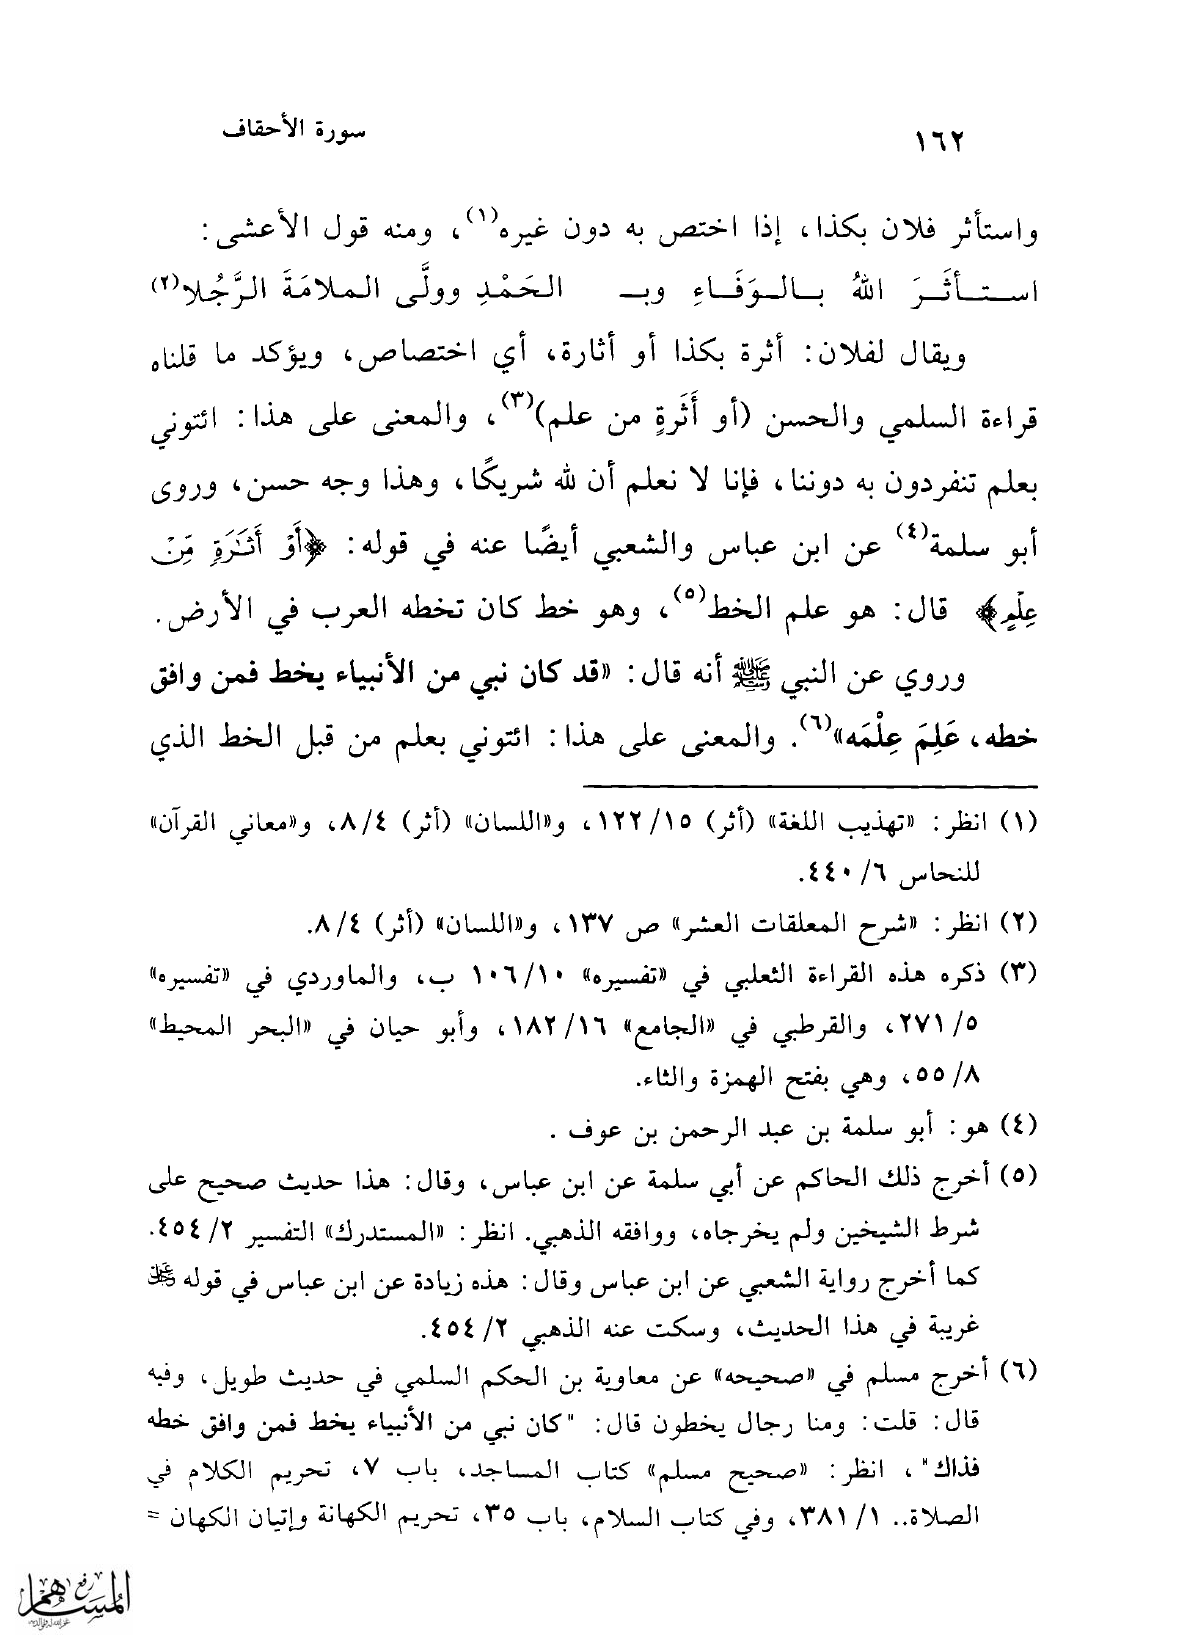 ١٦٢ سورة الأحقاف
واستأثر فلان بكذا، إذا اختص به دون غيره(١)، ومنه قول الأعشى:
استأثَرَ اللهُ بالوَفَاءِ وبـ الحَمْدِ وولَّى الملامَةَ الرَّجُلا(٢)
ويقال لفلان: أثرة بكذا أو أثارة، أي اختصاص، ويؤكد ما قلناه
قراءة السلمي والحسن (أو أَثَرةٍ من علم)(٣)، والمعنى على هذا: ائتوني
بعلم تنفردون به دوننا، فإنا لا نعلم أن لله شريكًا، وهذا وجه حسن، وروى
أبو سلمة(٤) عن ابن عباس والشعبي أيضًا عنه في قوله: ﴿أَوْ أَثَٰرَةٍ مِّنْ
عِلْمٍ﴾ قال: هو علم الخط(٥)، وهو خط كان تخطه العرب في الأرض.
وروي عن النبي ﷺ أنه قال: «قد كان نبي من الأنبياء يخط فمن وافق
خطه، عَلِمَ عِلْمَه»(٦). والمعنى على هذا: ائتوني بعلم من قبل الخط الذي
(١) انظر: «تهذيب اللغة» (أثر) ١٥/ ١٢٢، و«اللسان» (أثر) ٤/ ٨، و«معاني القرآن»
للنحاس ٦/ ٤٤٠.
(٢) انظر: «شرح المعلقات العشر» ص ١٣٧، و«اللسان» (أثر) ٤/ ٨.
(٣) ذكره هذه القراءة الثعلبي في «تفسيره» ١٠/ ١٠٦ ب، والماوردي في «تفسيره»
٥/ ٢٧١، والقرطبي في «الجامع» ١٦/ ١٨٢، وأبو حيان في «البحر المحيط»
٨/ ٥٥، وهي بفتح الهمزة والثاء.
(٤) هو: أبو سلمة بن عبد الرحمن بن عوف .
(٥) أخرج ذلك الحاكم عن أبي سلمة عن ابن عباس، وقال: هذا حديث صحيح على
شرط الشيخين ولم يخرجاه، ووافقه الذهبي. انظر: «المستدرك» التفسير ٢/ ٤٥٤.
كما أخرج رواية الشعبي عن ابن عباس وقال: هذه زيادة عن ابن عباس في قوله
غريبة في هذا الحديث، وسكت عنه الذهبي ٢/ ٤٥٤.
(٦) أخرج مسلم في «صحيحه» عن معاوية بن الحكم السلمي في حديث طويل، وفيه
قال: قلت: ومنا رجال يخطون قال: "كان نبي من الأنبياء يخط فمن وافق خطه
فذاك"، انظر: «صحيح مسلم» كتاب المساجد، باب ٧، تحريم الكلام في
الصلاة.. ١/ ٣٨١، وفي كتاب السلام، باب ٣٥، تحريم الكهانة وإتيان الكهان =